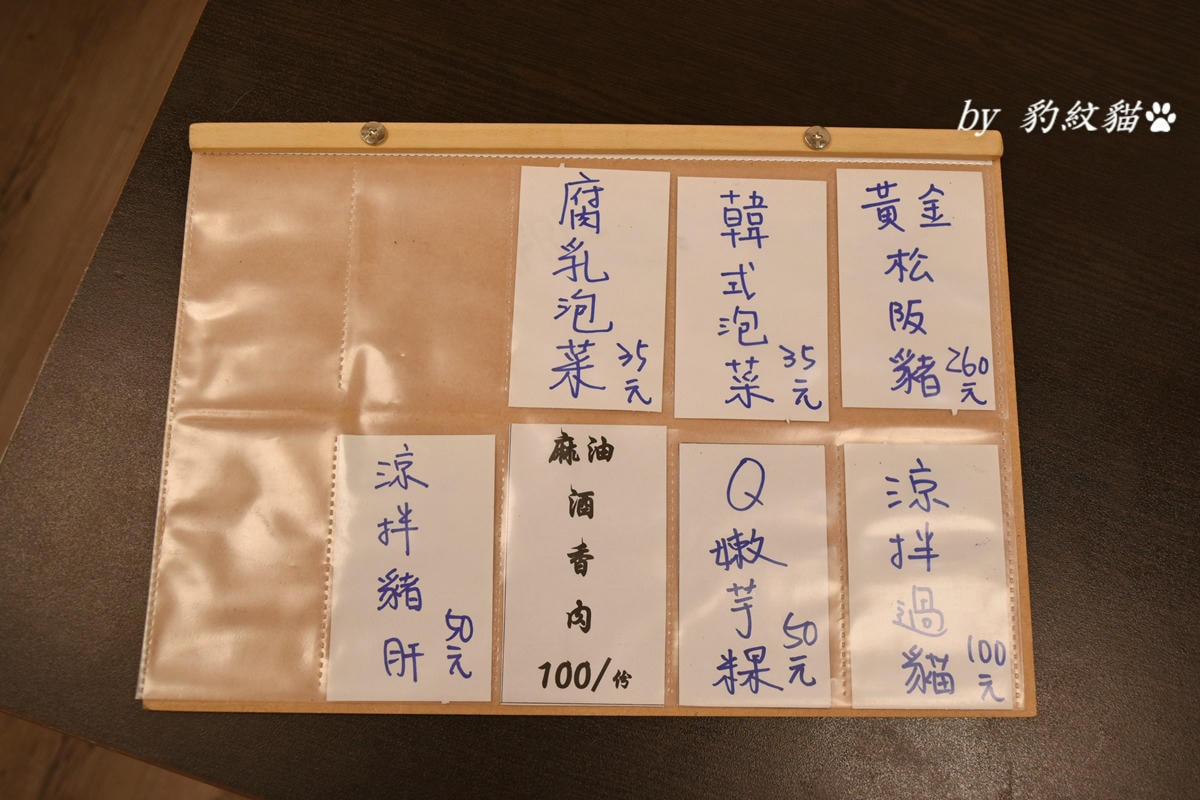 by 豹紋貓
黃金松阪豬 260元
韓式泡菜 35元
腐乳泡菜 35元
涼拌過貓 100元
Q嫩芋粿 50元
麻油酒香肉 100/份
涼拌豬肝 50元